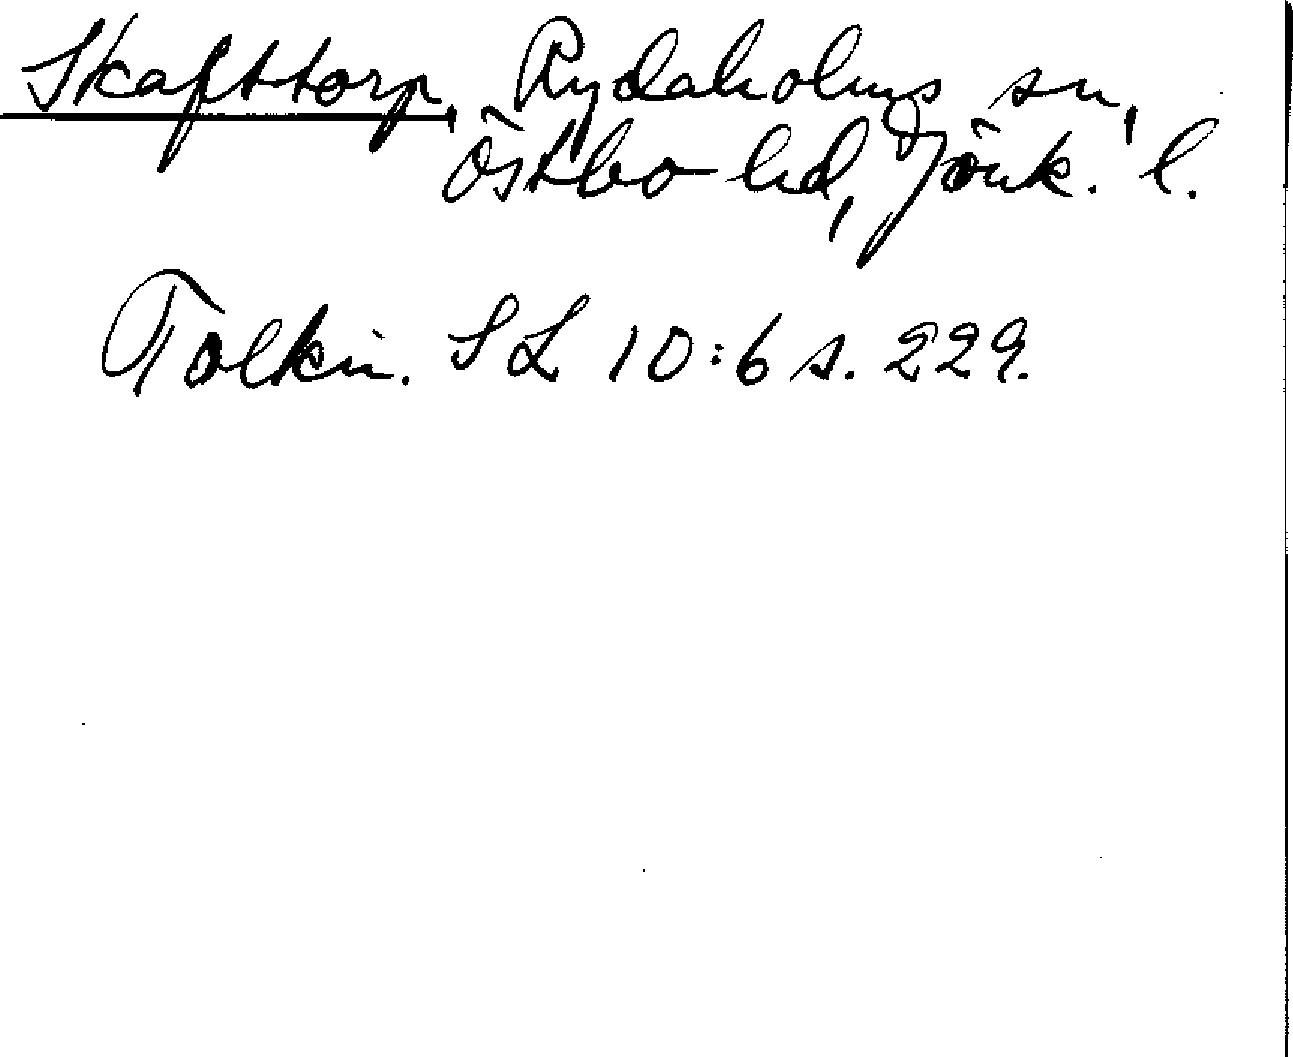 Skafttorp, Rydaholms sn,
Östbo hd, Jönk. l.
Tolkn. SL 10:6 s. 229.